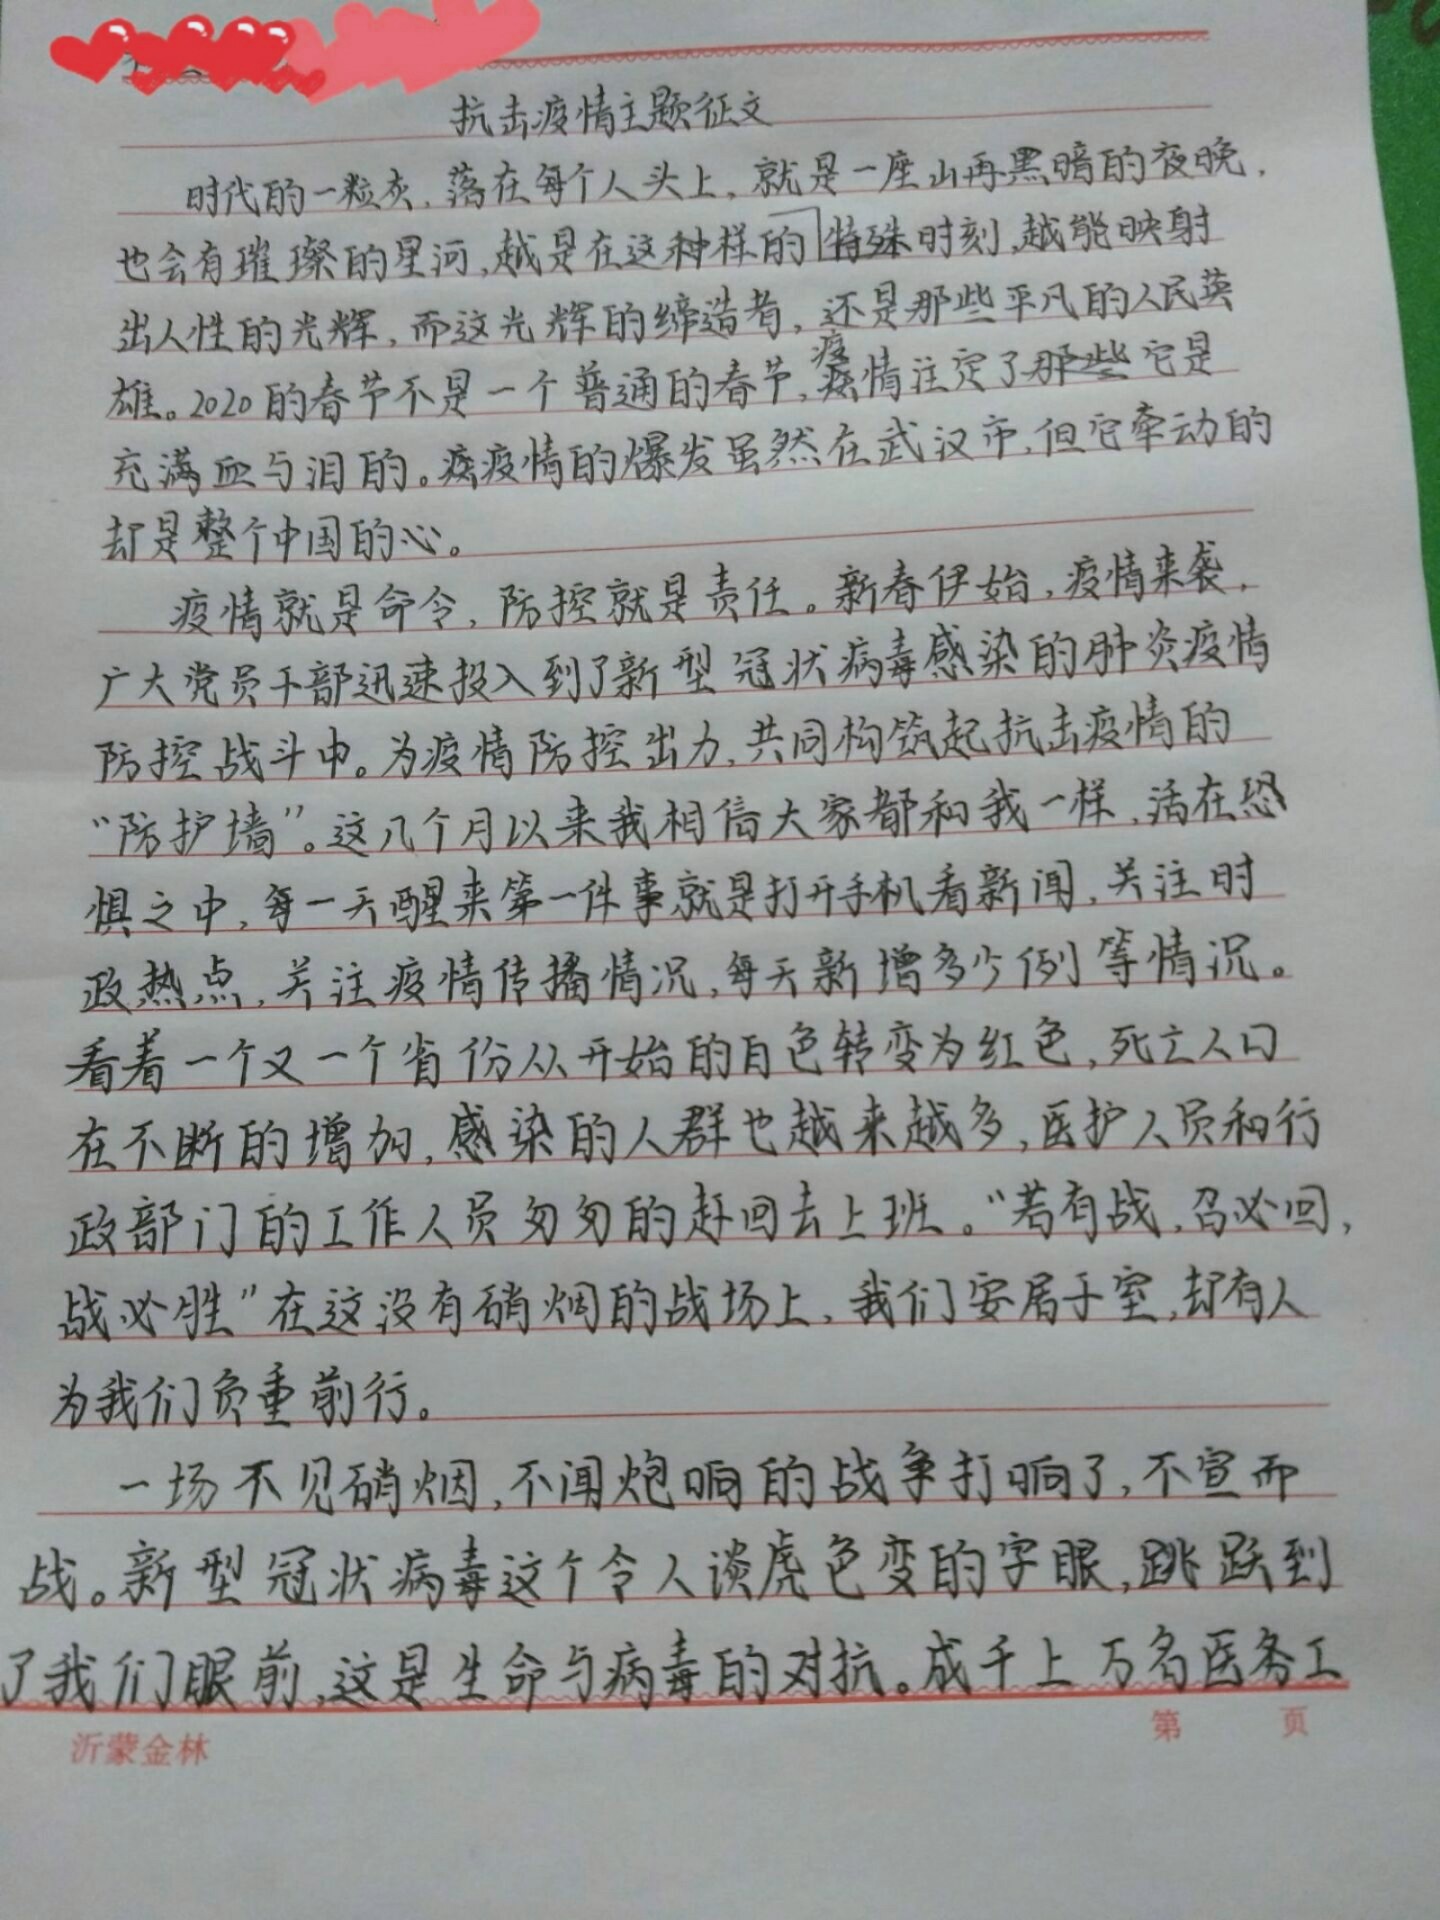 抗击疫情主题征文
时代的一粒灰，落在每个人头上，就是一座山再黑暗的夜晚，
也会有璀璨的星河，越是在这种样的特殊时刻，越能映射
出人性的光辉，而这光辉的缔造者，还是那些平凡的人民英
雄。2020的春节不是一个普通的春节，疫情注定了那些它是
充满血与泪的。疫情的爆发虽然在武汉市，但它牵动的
却是整个中国的心。
疫情就是命令，防控就是责任。新春伊始，疫情来袭，
广大党员干部迅速投入到了新型冠状病毒感染的肺炎疫情
防控战斗中。为疫情防控出力，共同构筑起抗击疫情的
“防护墙”。这几个月以来我相信大家都和我一样，活在恐
惧之中，每一天醒来第一件事就是打开手机看新闻，关注时
政热点，关注疫情传播情况，每天新增多少例等情况。
看着一个又一个省份从开始的白色转变为红色，死亡人口
在不断的增加，感染的人群也越来越多，医护人员和行
政部门的工作人员匆匆的赶回去上班。“若有战，召必回，
战必胜”在这没有硝烟的战场上，我们安居于室，却有人
为我们负重前行。
一场不见硝烟，不闻炮响的战争打响了，不宣而
战。新型冠状病毒这个令人谈虎色变的字眼，跳跃到
了我们眼前，这是生命与病毒的对抗。成千上万名医务工
沂蒙金林
第 页